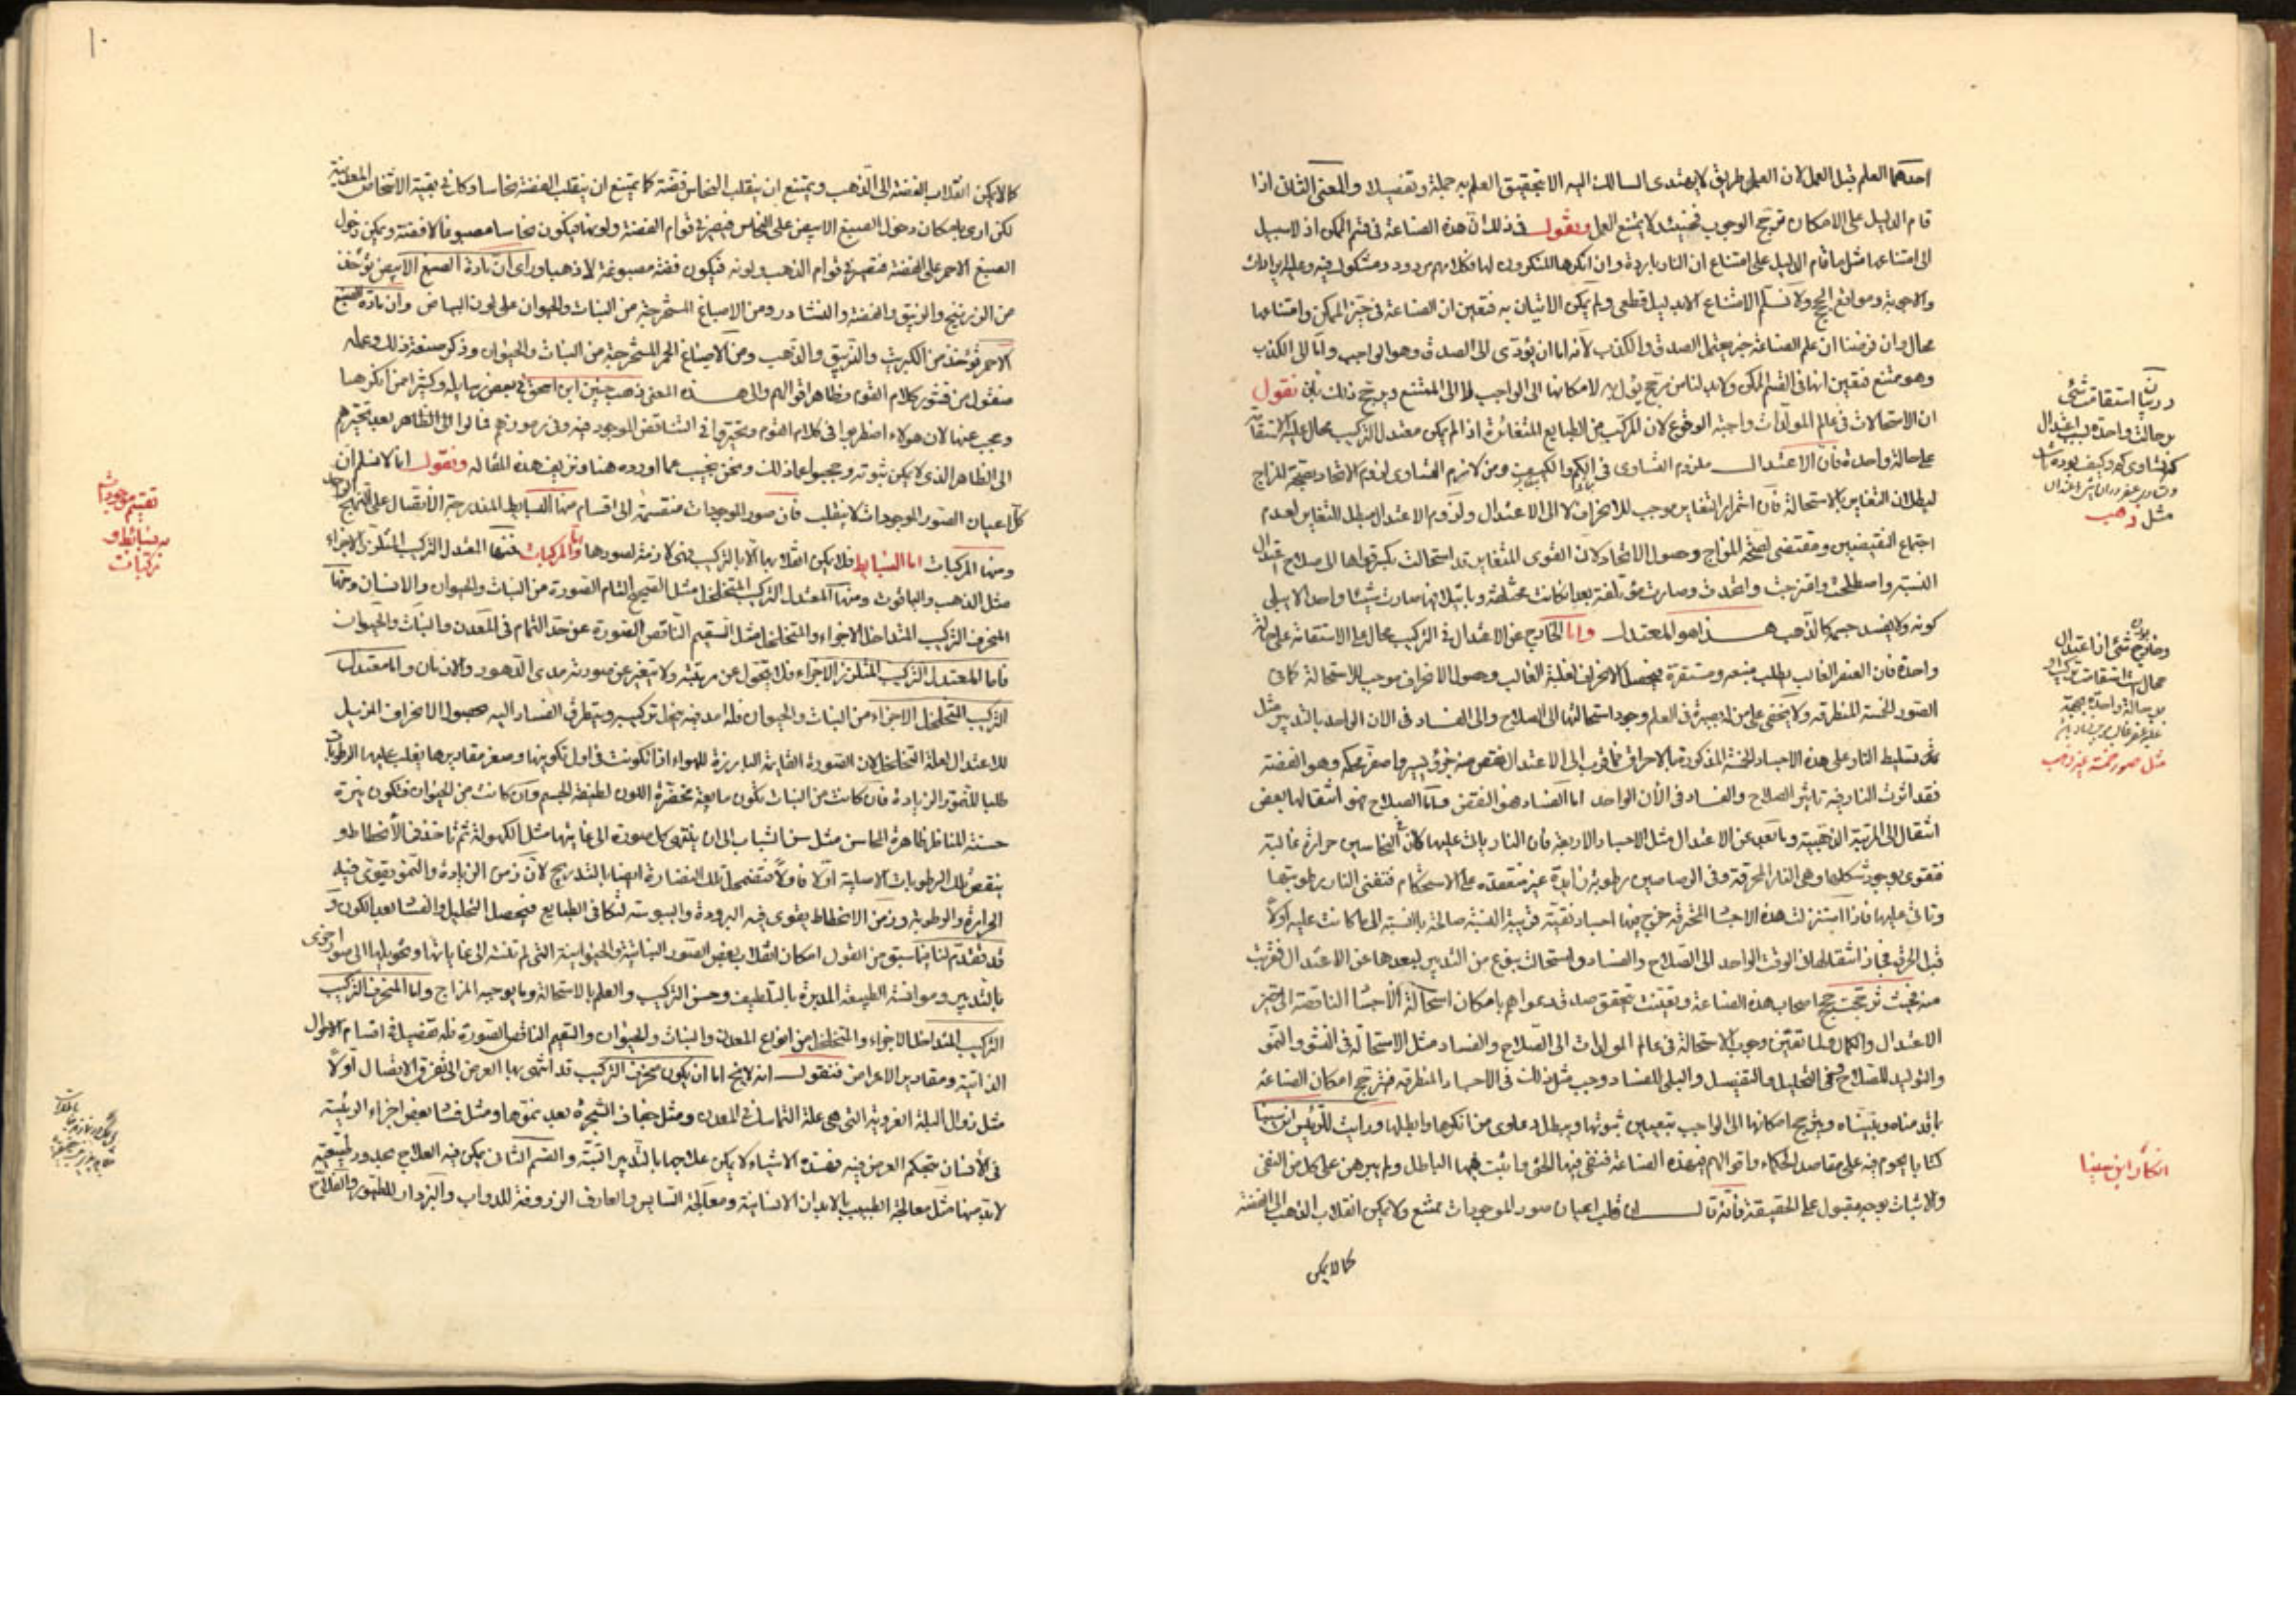 احدهما العلم قبل العمل لان العمل طريق لا يهتدى السالك اليه الا بتحقيق العلم به جملة وتفصيلا والمعنى الثانى اذا
قام الدليل على الامكان ترجح الوجوب فحينئذ لا يمتنع العمل ونقول فى ذلك ان هذه الصناعة فى قسم الممكن اذ لا سبيل
الى امتناعها مثل ما قام الدليل على امتناع ان النار باردة وان انكرها المنكرون لها فكلامهم مردود ومشكوك فيه وعليه ايرادات
والاجوبة وموانع الحج ولا نسلم الامتناع الا بدليل قطعى ولم يكن الاتيان به فتعين ان الصناعة فى حيز الممكن وامتناعها
محال وان فرضنا ان علم الصناعة خبر يحتمل الصدق والكذب لانه اما ان يؤدى الى الصدق وهو الواجب واما الى الكذب
وهو ممتنع فتعين انها فى القسم الممكن ولا بد لنا من مرجح يؤل به لامكانها الى الواجب لا الى الممتنع ويرجح ذلك بان نقول
ان الاستحالات فى عالم المولدات واجبة الوقوع لان المركب من الطبايع المتغائرة اذا لم يكن معتدل التركيب محال عليه الاستقامة
على حالة واحدة فان الاعتدال ملزوم التساوى فى الكم والكيف ومن لازم التساوى لزوم الاتحاد بصحة المزاج
لبطلان التغاير بالاستحالة فان استمرار التغاير موجب للانحراف لا الى الاعتدال ولزوم الاعتدال مبطل للتغاير لعدم
اجتماع النقيضين ومقتضى لصحة المزاج وحصول الاتحاد لان القوى المتغايرة قد استحالت بكسر قواها الى صلاح اعتدال
النسبة واصطلحت وامتزجت واتحدت وصارت مؤتلفة بعد ان كانت مختلفة وبائتلافها صارت شيئا واحدا لا يبلى
كونه ولا يفسد جسمه كالذهب هذا هو المعتدل واما الخارج عن الاعتدال فى التركيب محال عليه الاستقامة على حالة
واحدة فان العنصر الغالب يطلب منبعه ومستقره فيحصل الانحراف لغلبة الغالب وحصول الانحراف موجب للاستحالة كما فى
الصور الخمسة المنطرقة ولا يخفى على من له بصيرة فى العلم وجود استحالتها الى الصلاح والى الفساد فى الان الواحد بالتدبير مثل
تسليط النار على هذه الاجساد الخمسة المذكورة بالاحراق فما قرب الى الاعتدال نقص منه جزؤ يسير وهو الفضة
فقد اثرت النار فيه تاثير الصلاح والفساد فى الأن الواحد اما الفساد فهو النقص واما الصلاح فهو انتقالها بعض
انتقال الى المرتبة الذهبية وما بعد عن الاعتدال مثل الاجساد الاربعة فان النار باتت عليها لان فى النحاسين حرارة غالبة
فتقوى بوجود شكلها وهى النار المحرقة وفى الرصاصين رطوبة زايدة غير منعقدة على الاستحكام فتفنى النار رطوبتها
وتاتى عليها فاذا استنزلت هذه الاجساد المحرقة خرج منها اجساد نقية قريبة النسبة صالحة بالنسبة الى ما كانت عليه اولا
قبل الحرق فجاز انتقالها فى الوقت الواحد الى الصلاح والفساد واستحالت بنوع من التدبير لبعدها عن الاعتدال فقربت
منه فحيث ترجحت حجج اصحاب هذه الصناعة وتعينت تحقق صدق دعواهم بامكان استحالة الاجساد الناقصة الى حيز
الاعتدال والكمال ولما تعين وجوب الاستحالة فى عالم المولدات الى الصلاح والفساد مثل الاستحالة فى النشو والنمو
والتوليد للصلاح وفى التحليل والتفصيل والبلى للفساد وجب مثل ذلك فى الاجساد المنطرقة فترجح امكان الصناعة
بما قدمناه وبيناه وبترجيح امكانها الى الواجب بتعيين ثبوتها ويبطل دعاوى من انكرها وابطلها ورايت للرئيس ابن سينا
كتابا يحوم فيه على مقاصد الحكماء واقوالهم فى هذه الصناعة فنفى فيها الحق واثبت فيها الباطل ولم يبرهن على كل من النفى
والاثبات بوجه مقبول على الحقيقة فانه قال ان قلب اعيان صور الموجودات ممتنع ولا يمكن انقلاب الذهب الى الفضة
كما لا يمكن
مثل ذهب
مثل صور خمسة غير ذهب
انكار ابن سينا
١٠
كما لا يمكن انقلاب الفضة الى الذهب ويمتنع ان ينقلب النحاس فضة كما يمتنع ان ينقلب الفضة نحاسا وكذا فى بقية الاشخاص المعدنية
لكن ارى بامكان دخول الصبغ الابيض على النحاس فيصير فى قوام الفضة ولونها فيكون نحاسا مصبوغا لا فضة ويمكن دخول
الصبغ الاحمر على الفضة فتصير فى قوام الذهب ولونه فيكون فضة مصبوغة لا ذهبا وراى ان مادة الصبغ الابيض يؤخذ
من الزرنيخ والزيبق والفضة والنشادر ومن الاصباغ المستخرجة من النبات والحيوان على لون البياض وان مادة الصبغ
الاحمر تؤخذ من الكبريت والزيبق والذهب ومن الاصباغ الحمر المستخرجة من النبات والحيوان وذكر صنعة ذلك وعمله
منقول من قشور كلام القوم وظاهر اقوالهم والى هذا المعنى ذهب حنين ابن اسحق فى بعض رسايله وكثيرا ممن انكرها
وعجب عنها لان هؤلاء اضطربوا فى كلام القوم وتحيروا فى التناقض الموجود فيه وفى رموزهم فمالوا الى الظاهر بعد تحيرهم
الى الظاهر الذى لا يمكن ثبوته وعجبوا عما ذلك ونحن نجيب عما اورده هنا وتزييف هذه المقالة ونقول انا لا نسلم ان
كل اعيان الصور الموجودات لا ينقلب فان صور الموجودات منقسمة الى اقسام منها البسايط المندرجة الانتقال على النهج الواحد
ومنها المركبات اما البسايط فلا يمكن انقلابها الا بالتركيب فهى لازمة لصورها واما المركبات فمنها المعتدل التركيب المتلزز الاجزاء
مثل الذهب والياقوت ومنها المعتدل التركيب المتخلخل مثل الصحيح التام الصورة من النبات والحيوان والانسان ومنها
المنحرف التركيب المتداخل الاجزاء والمتخلخل مثل السقيم الناقص الصورة عن حد التمام فى المعدن والنبات والحيوان
فاما المعتدل التركيب المتلزز الاجزاء فلا يتحول عن مرتبته ولا يتغير عن صورته مدى الدهور والازمان واما معتدل
التركيب المتخلخل الاجزاء من النبات والحيوان فله امد فيه ينحل تركيبه ويتطرق الفساد اليه بحصول الانحراف المزيل
للاعتدال لعلة التخلخل لان الصورة القايمة البارزة للهواء اذا تكونت فى اول تكوينها وصغر مقاديرها يغلب عليها الرطوبات
طلبا للنمو والزيادة فان كانت من النبات تكون يانعة مخضرة اللون لطيفة الجسم وان كانت من الحيوان فتكون نيرة
حسنة المناظر ظاهرة المحاسن مثل سن الشباب الى ان ينتهى كل صورة الى غايتها مثل الكهولة ثم تاخذ فى الانحطاط و
ينقص تلك الرطوبات الاصلية اولا فاولا فتضمحل تلك النضارة ايضا بالتدريج لان زمن الزيادة والنمو يقوى فيه
الحرارة والرطوبة وزمن الانحطاط يقوى فيه البرودة واليبوسة لتكافى الطبايع فيحصل التحليل والفساد بعد الكون و
قد تقدم لنا فيما سبق من القول امكان انقلاب بعض الصور النباتية والحيوانية التى لم تنته الى غاياتها وتحويلها الى صور اخرى
بالتدبير وموافقة الطبيعة المدبرة بالتلطيف وحسن التركيب والعلم بالاستحالة وما يوجبه المزاج واما المنحرف التركيب
التركيب المتداخل الاجزاء والمتخلخل من انواع المعدن والنبات والحيوان والسقيم الناقص الصورة فله تفصيل فى اقسام الاحوال
الذاتية ومقادير الاعراض فنقول انه لا يخ اما ان يكون منحرف التركيب قد انتهى بها العرض الى تفرق الاتصال اولا
مثل زوال البلة الغروية التى هى علة التماسك فى المعدن ومثل جفاف الشجرة بعد نموها ومثل فساد بعض اجزاء الرئيسة
فى الانسان بتحكم العرض فيه فهذه الاشياء لا يمكن علاجها بالتدبير البتة والقسم الثانى يمكن فيه العلاج بمدبر وطبيعة
لا بد منها مثل معالجة الطبيب بالابدان الانسانية ومعالجة السايس والعارف الزردقة للدواب والبزدار للطيور والفلاح
تقسيم موجودات
به بسائط و
مركبات